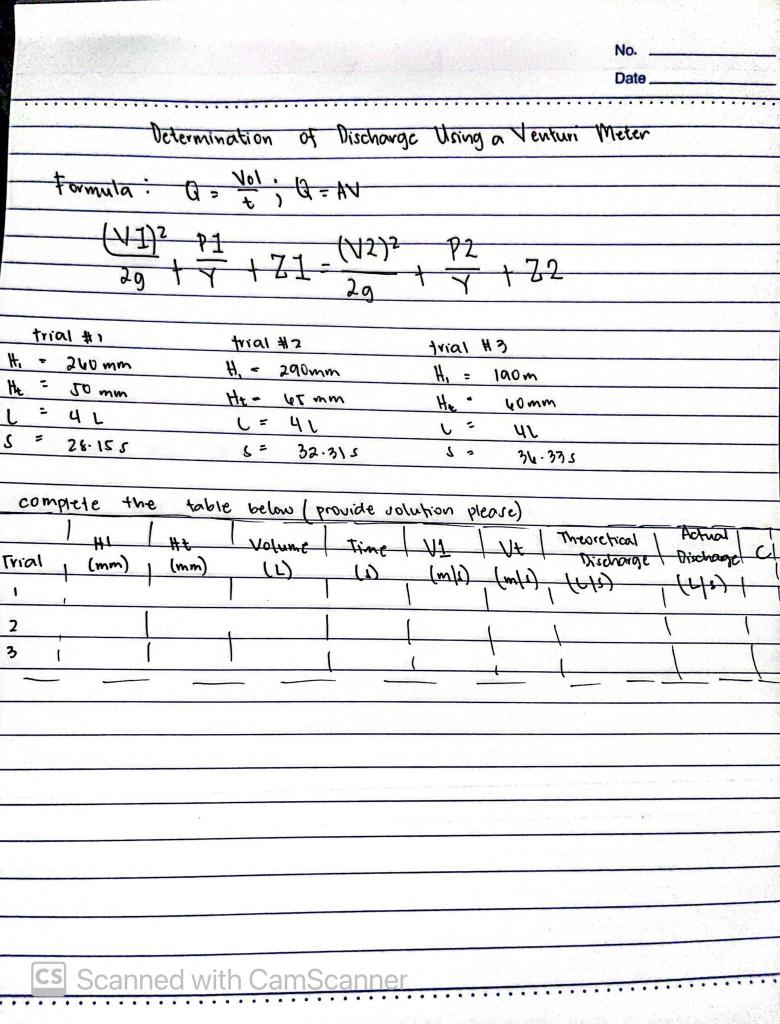 No.
Date
Determination of Discharge Using a Venturi Meter
Formula : Q = Vol/t ; Q = AV
(V1)²/2g + P1/γ + Z1 = (V2)²/2g + P2/γ + Z2
trial #1 trial #2 trial #3
H₁ = 260 mm H₁ = 290mm H₁ = 190m
Ht = 50 mm Ht = 65 mm Ht = 60mm
L = 4 L L = 4L L = 4L
S = 28.15 s S = 32.31 s S = 36.33 s
complete the table below ( provide solution please)
Trial H1 (mm) Ht (mm) Volume (L) Time (s) V1 (m/s) Vt (m/s) Theoretical Discharge (L/s) Actual Discharge (L/s) C
1
2
3
CS Scanned with CamScanner